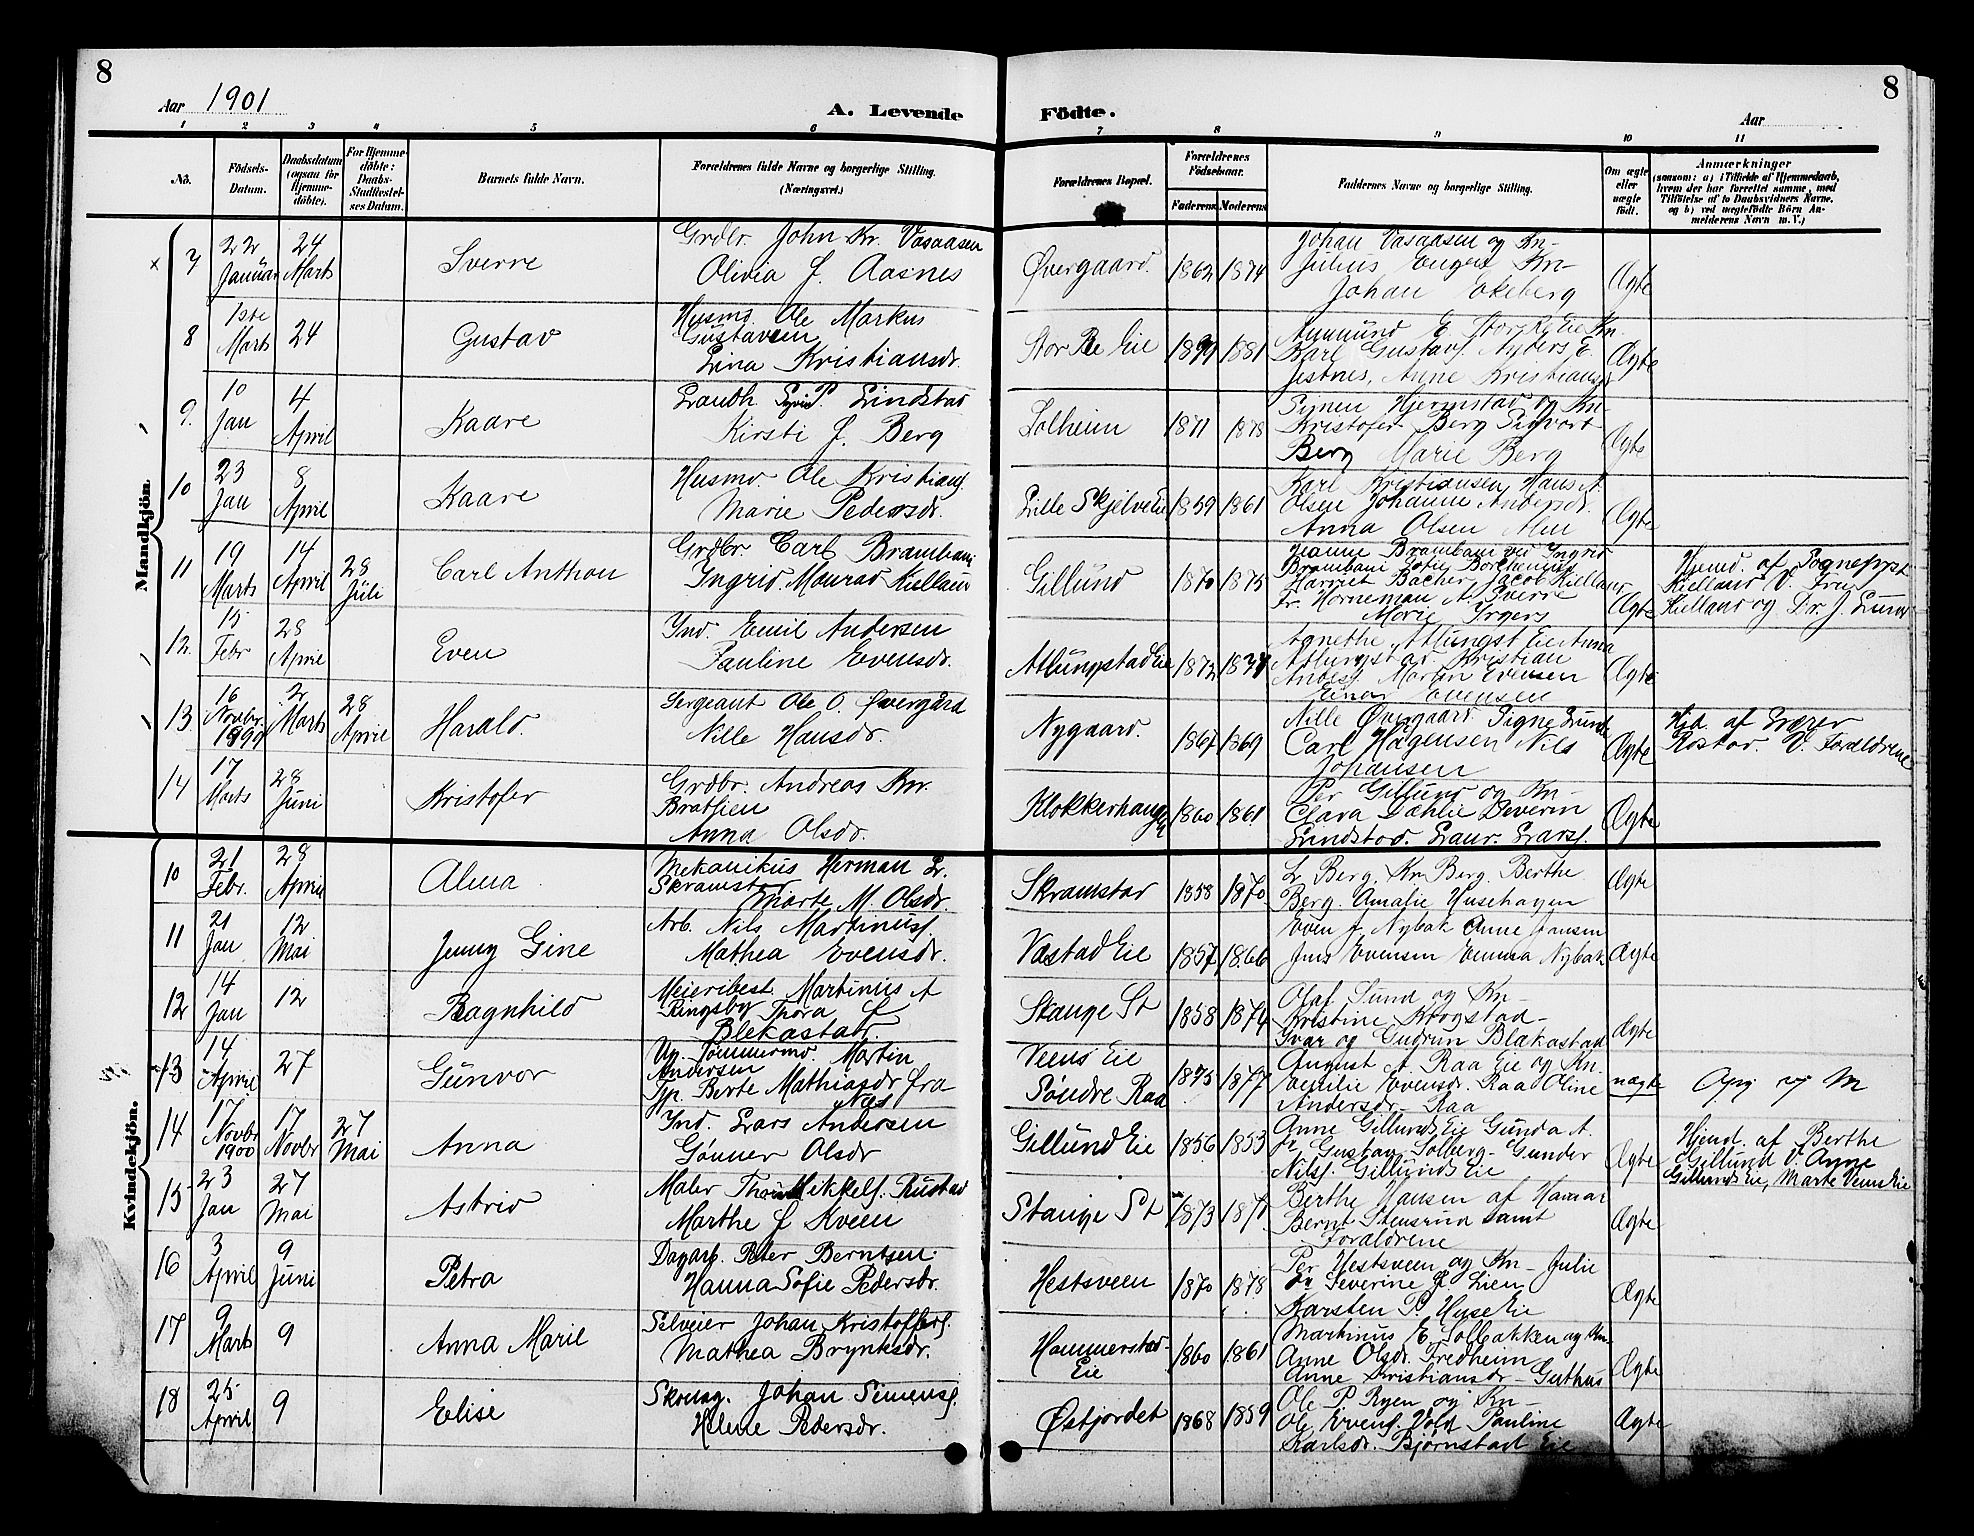 8
8
Aar 1901
A. Levende Födte.
Aar
1 2 3 4 5 6 7 8 9 10 11
No.
Födsels-Datum.
Daabsdatum (ogsaa for Hjemmedöbte).
For Hjemmedöbte: Daabs-Stadfæstelses Datum.
Barnets fulde Navn.
Forældrenes fulde Navne og borgerlige Stilling.
(Næringsvei.)
Forældrenes Bopæl.
Forældrenes Födselsaar.
Faderens Moderens
Faddernes Navne og borgerlige Stilling.
Om ægte eller uægte födt.
Anmærkninger
(saasom: a) i Tilfælde af Hjemmedaab, hvem der har forrettet samme, med Tilföielse af to Daabsvidners Navne, og b) ved uægtefödte Börn Anmelderens Navn m. V.)
Mandkjön.
7 22 Januar 24 Marts Sverre Grdbr. John Kr. Vasaasen
Olivia J. Aasnes Övergaard. 1862 1874 Johan Vasaasen og Kn-
Julius Enger Kn-
Johan Ekeberg Ægte
8 1ste Marts 24 Gustav Husmd Ole Markus
Gustavsen
Lina Kristiansdr. Stor Re Eie 1881 Amund E. Stor Re Eie Kn.
Karl Gustavs. Nybers E.
Jestnes, Anne Kristiansdr Ægte
9. 10 Jan 4 April Kaare Landh. P. Lindstad
Kirsti J. Berg Solheim 1871 1878 Hjermstad og Kn-
Kristofer Berg Sigvart
Berg Marie Berg Ægte
10 23 Jan 8 April Kaare Husmd. Ole Kristians.
Marie Pedersdr. Lille Skjelve Eie 1859 1861 Karl Kristiansen Hans A.
Olsen Johanne Andersdr.
Anna Olsen Ægte
11 19 Marts 14 April 28 Juli Carl Anthon Grdbr Carl Brambani
Ingrid Monrad Kielland Gillund 1870 1875 Brambani ved Ingrid
Brambani Sofie Borchenius
Harriet Backer Jacob Kielland
Fr. Horneman A. Sverre
Marie Ægte Hjemd. af Sogneprst
Kielland V.
Kielland og Fr. J. Lund
12. 15 Febr 28 April Even Ind. Emil Andersen
Pauline Evensdr. Atlungstad Eie 1872 Agnethe Atlungst Eie Anna
Atlungstad. Kristian
Anders. Martin Evensen
Einar Evensen Ægte
13 16 Novbr. 1899 2 Marts 28 April Harald. Sergeant Ole O. Övergård
Nille Hansdr. Nygaard. 1867 1869 Nille Övergaard. Signe Lunde
Carl Hagensen Nils
Johansen Ægte Hjd. af Lærer
Rostad. V. Forældrene
14 17 Marts 28 Juni Kristofer Grdbr. Andreas Kr.
Bratlien
Anna Olsdr. Klokkerhaugen 1860 1861 Per Gillund og Kn-
Clara Dæhlie Severin
Lindstad. Laur. Lars. Ægte
Kvindekjön.
10 21 Febr. 28 April Alma Mekanikus Herman Lr.
Skramstad
Marte M. Olsdr. Skramstad 1858 1870 L. Berg. Kr. Berg. Berthe
Berg. Amalie Husehagen Ægte
11 21 Jan 12 Mai Jenny Gine Arb. Nils Martinus.
Mathea Evensdr. Vestad Eie 1857 1866 Even J. Nybak Anne Jansen
Jens Evensen Emma Nybak Ægte
12 14 Jan 12 Ragnhild Meieribest. Martinius A
Ringsby Thora J.
Blekastad Stange St 1858 1874 Olaf Sund og Kn-
Kristine Krogstad-
Ivar og Gudrun Blækastad Ægte
13 14 April 27 Gunvor Up. Tømmermd. Martin
Andersen
Tjp. Berte Mathiasdr fra
Næs Veens Eie
Søndre Raa 1875 1877 August A. Raa Eie og Kn.
Emilie Evensdr. Raa Oline
Andersdr- Raa uægte Opg. og M
14 17 Novbr 1900 17 Novbr 27 Mai Anna Ind. Lars Andersen
Gønner Olsdr Gillund Eie 1856 1853 Anne Gillunds Eie Gunda A.
Gustav Solberg- Gunder
Nils. Gillunds Eie Ægte Hjemd. af Berthe
Gillund V. Anne
Gillunds Eie, Marte Veens Eie
15 23 Jan 27 Mai Astrid Maler Mikkels. Rustad
Marthe J Kveen Stange St 1873 1871 Berthe Hansen af Hamar
Bernt Stensrud samt
Forældrene Ægte
16 3 April 9 Juni Petra Dagarb. Peter Berntsen.
Hanna Sofie Pedersdr. Hestsveen 1870 1878 Per Hestsveen og Kn- Julie
Severine J. Lien
Karsten P. Huse Eie Ægte
17 9 Marts 9 Anna Marie Selveier Johan Kristoffers.
Mathea Brynhsdr. Hommerstad-
Eie 1860 1861 Martinus E. Solbakken og Kn-
Anne Olsdr. Fredheim
Anne Kristiansdr- Guthus Ægte
18 25 April 9 Elise Skomag. Johan Simens.
Helene Pedersdr. Østfjordet 1868 1859 Ole P. Ryen og Kn-
Ole Evens. Vold Pauline
Karlsdr. Bjørnstad Eie Ægte